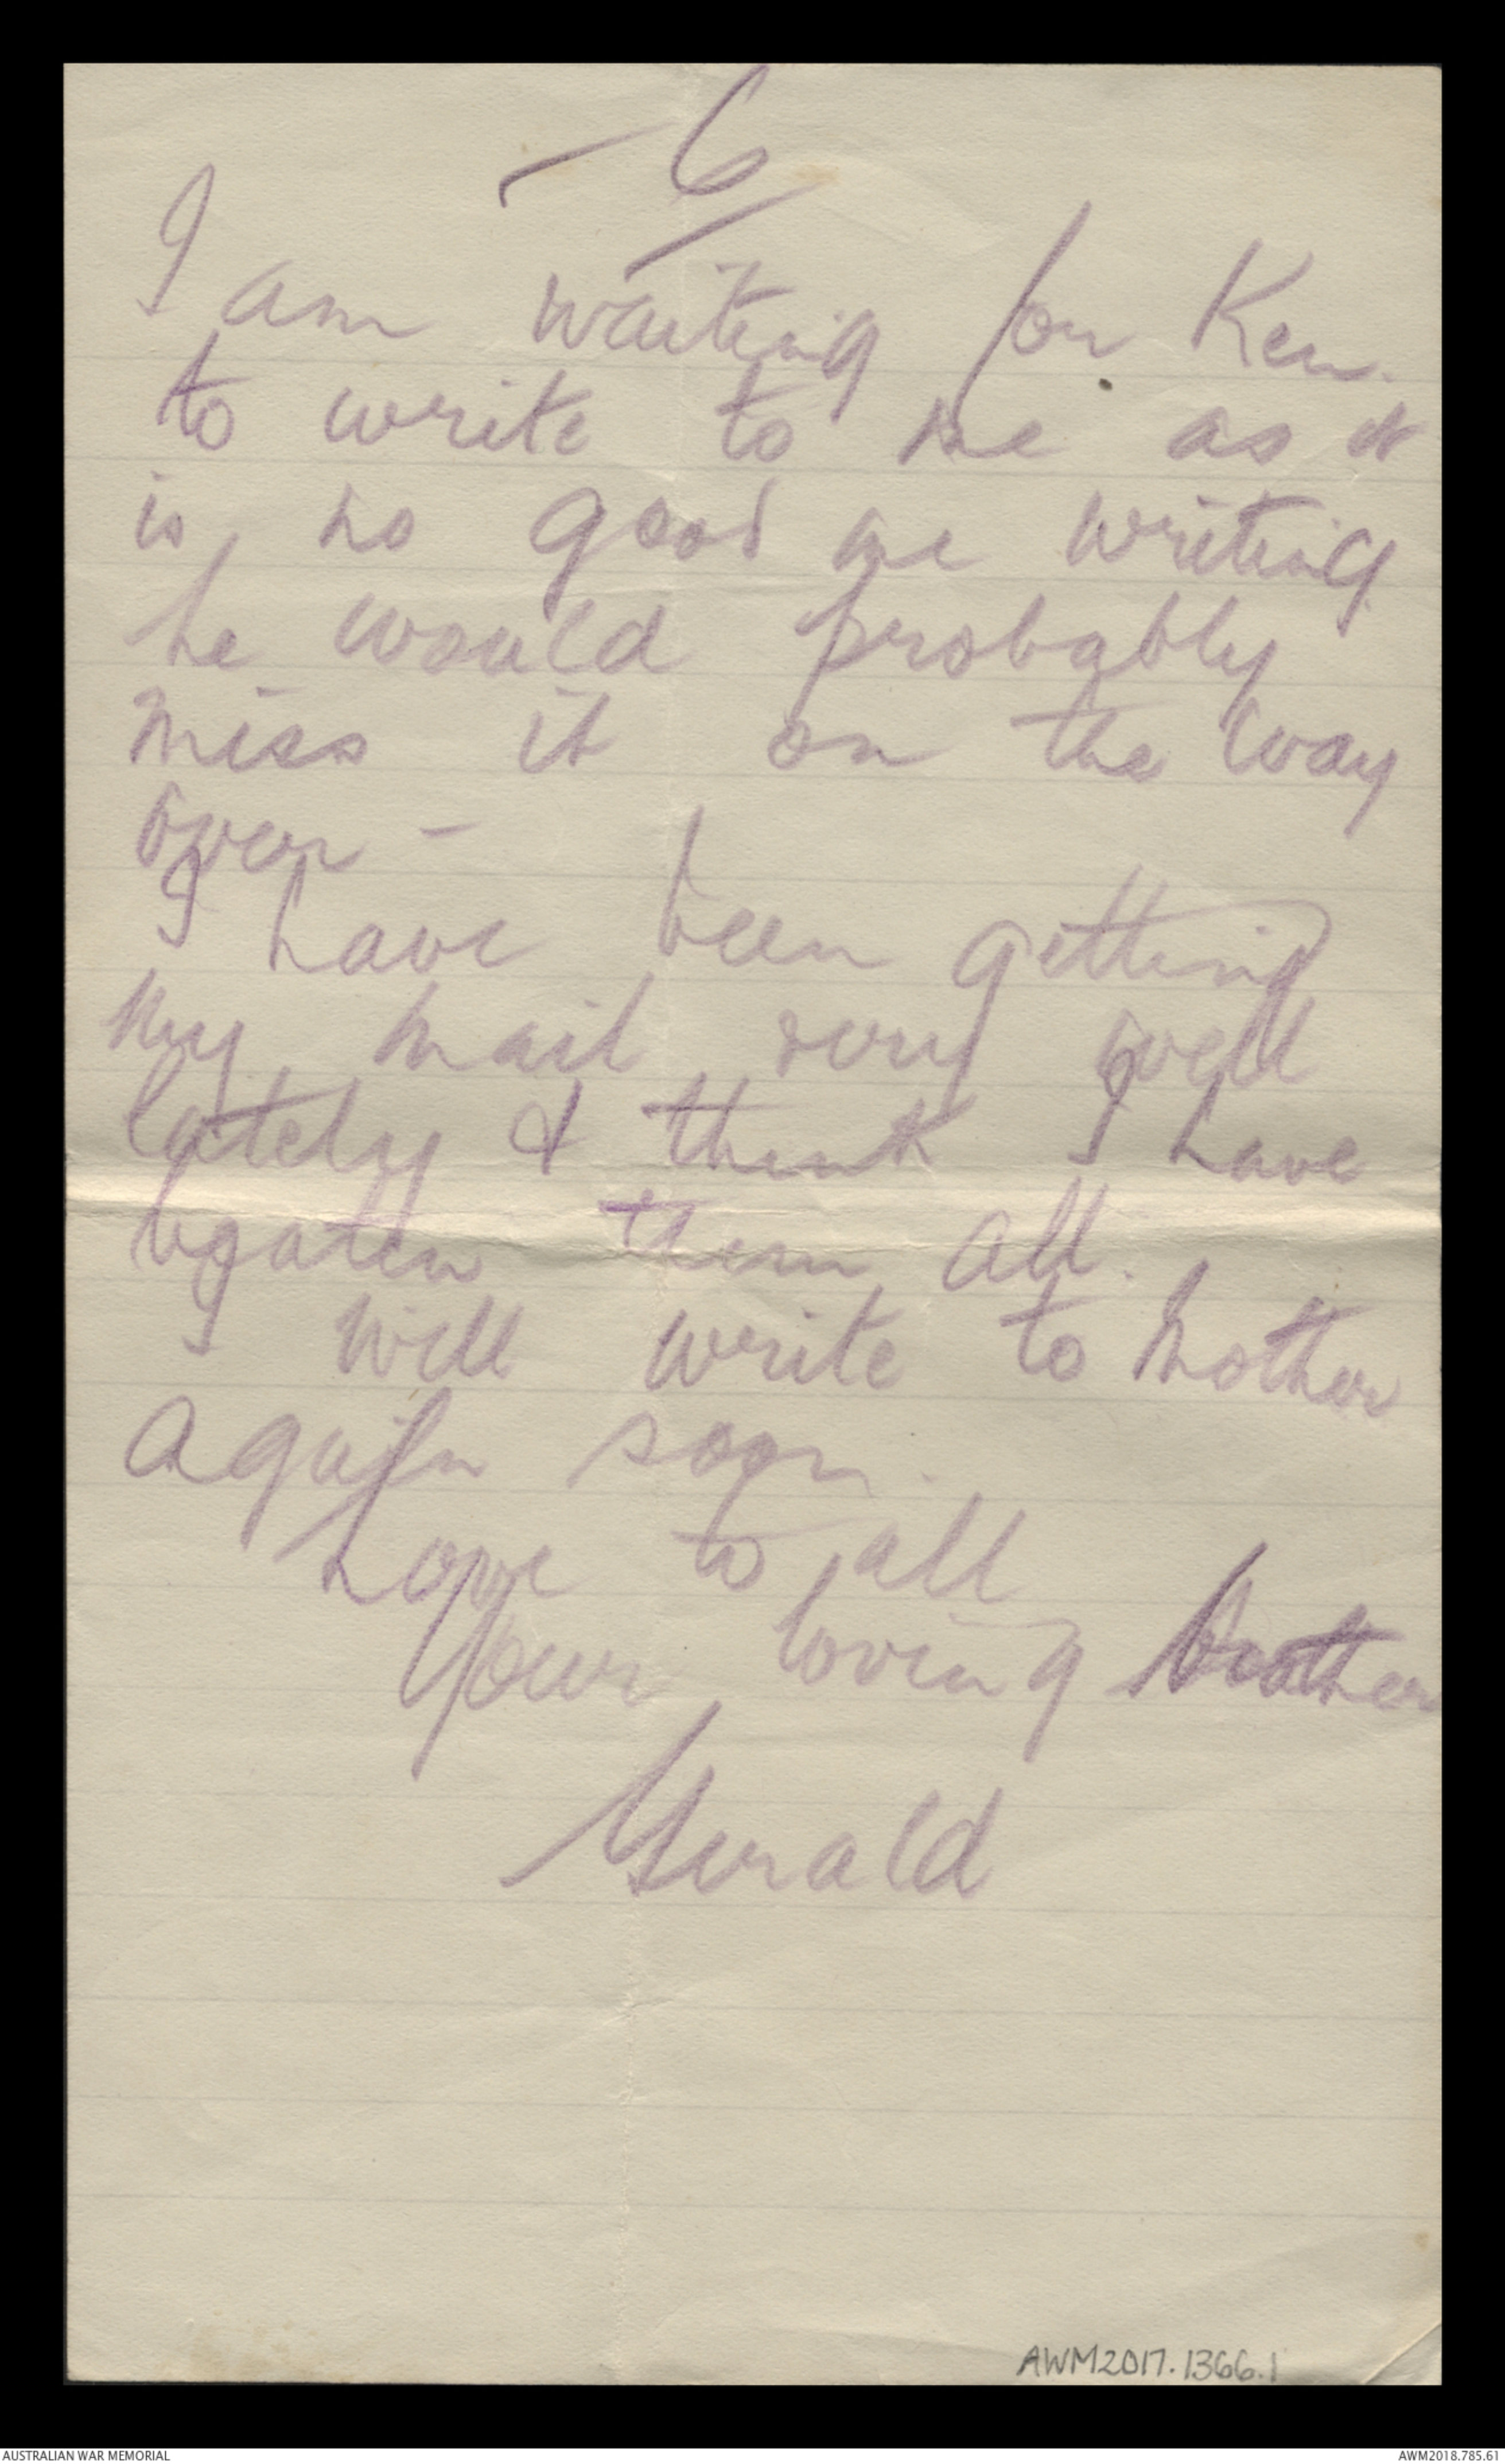 - 6 -
I am waiting for Ken.
to write to me as it
is no good me writing
he would probably
miss it on the way
over -
I have been getting
my mail very well
lately & think I have
them all.
I will write to Mother
again soon.
Love to all
Your loving brother
Gerald
AWM2017.1366.1
AUSTRALIAN WAR MEMORIAL
AWM2018.785.61